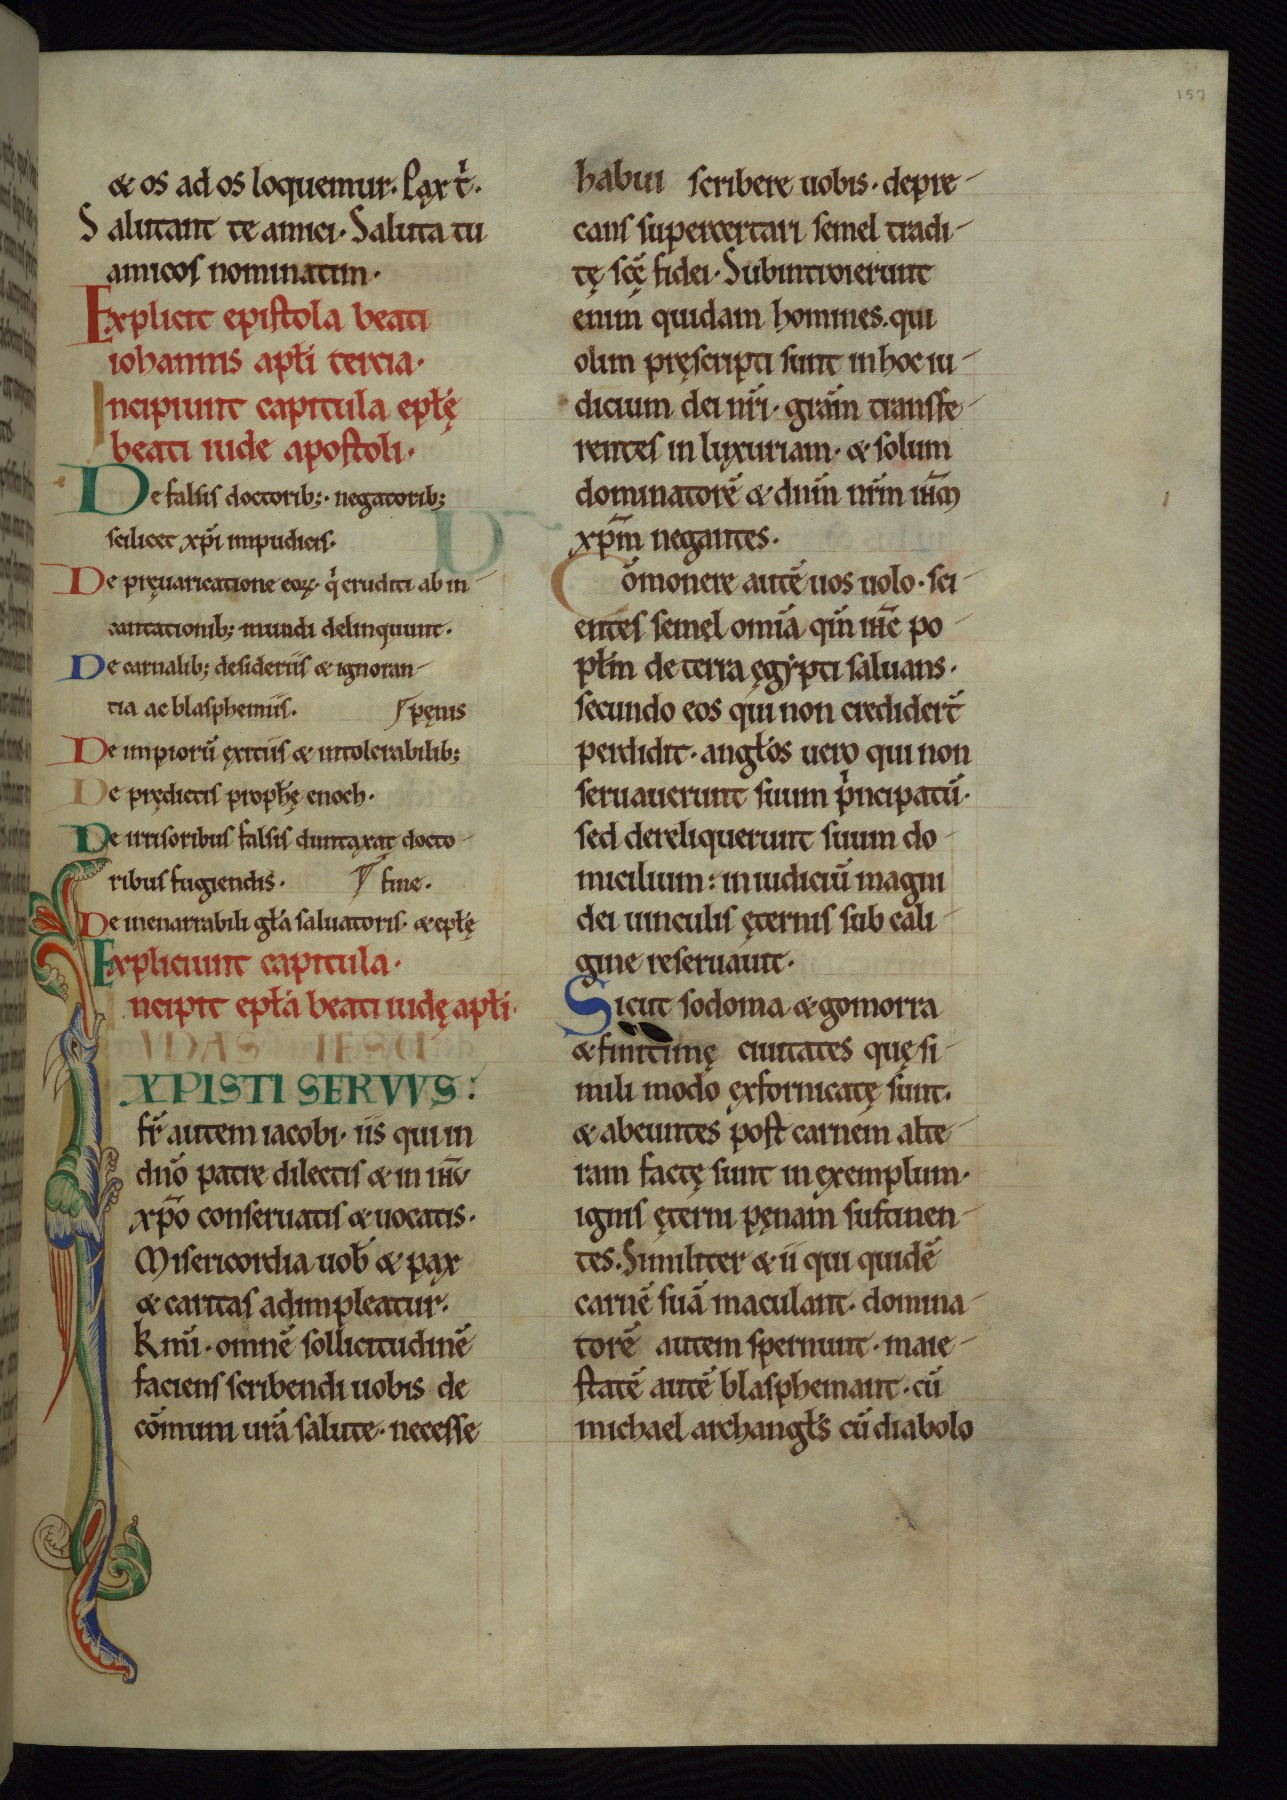 157
& os ad os loquemur. Pax t̉.
Salutant te amici. Saluta tu
amicos nominatim.
Explicit epistola beati
iohannis apłi tercia.
Incipiunt capitula epłę
beati iude apostoli.
De falsis doctorib; negatorib;
scilicet xp̄i impudicis.
De pręuaricatione eoꝝ. q̉ eruditi ab in-
cantationib; mundi delinquunt.
De carnalib; desideriis & ignoran-
tia ac blasphemiis. pęnis
De impiorū exitiis & intolerabilib;
De prędictis prophę enoch.
De irrisoribus falsis duntaxat docto-
ribus fugiendis. fine.
De inenarrabili głā saluatoris. & epłę
Expliciunt capitula.
ncipit epłā beati iudę apłi.
VDAS IESV
XPISTI SERVVS:
fr̄ autem iacobi. iis qui in
dn̄o patre dilectis & in ih̄u
xp̄o conseruatis & uocatis.
Misericordia uob̄ & pax
& caritas adimpleatur.
Kmi. omnē sollicitudinē
faciens scribendi uobis de
cōmuni ur̄a salute. necesse
habui scribere uobis. depre-
cans supercertari semel tradi-
tę sc̄ę fidei. Subintroierunt
enim quidam homines. qui
olim pręscripti sunt in hoc iu-
dicium dei nr̄i. gr̄am transfe-
rentes in luxuriam. & solum
dominatorē & dn̄m nr̄m ih̄m
xp̄m negantes.
Cōmonere autē uos uolo. sci-
entes semel omīa qm̄ ih̄c po-
płm de terra ęgypti saluans.
secundo eos qui non credider̄
perdidit. angłos uero qui non
seruauerunt suum p̉ncipatū.
sed dereliquerunt suum do-
micilium: in iudiciū magni
dei uinculis ęternis sub cali-
gine reseruauit.
Sicut sodoma & gomorra
& finitimę ciuitates quę si-
mili modo exfornicatę sunt.
& abeuntes post carnem alte-
ram factę sunt in exemplum.
ignis ęterni pęnam sustinen-
tes. Similiter & ii qui quidē
carnē suā maculant. domina-
torē autem spernunt. maie-
statē autē blasphemant. cū
michael archangłs cū diabolo